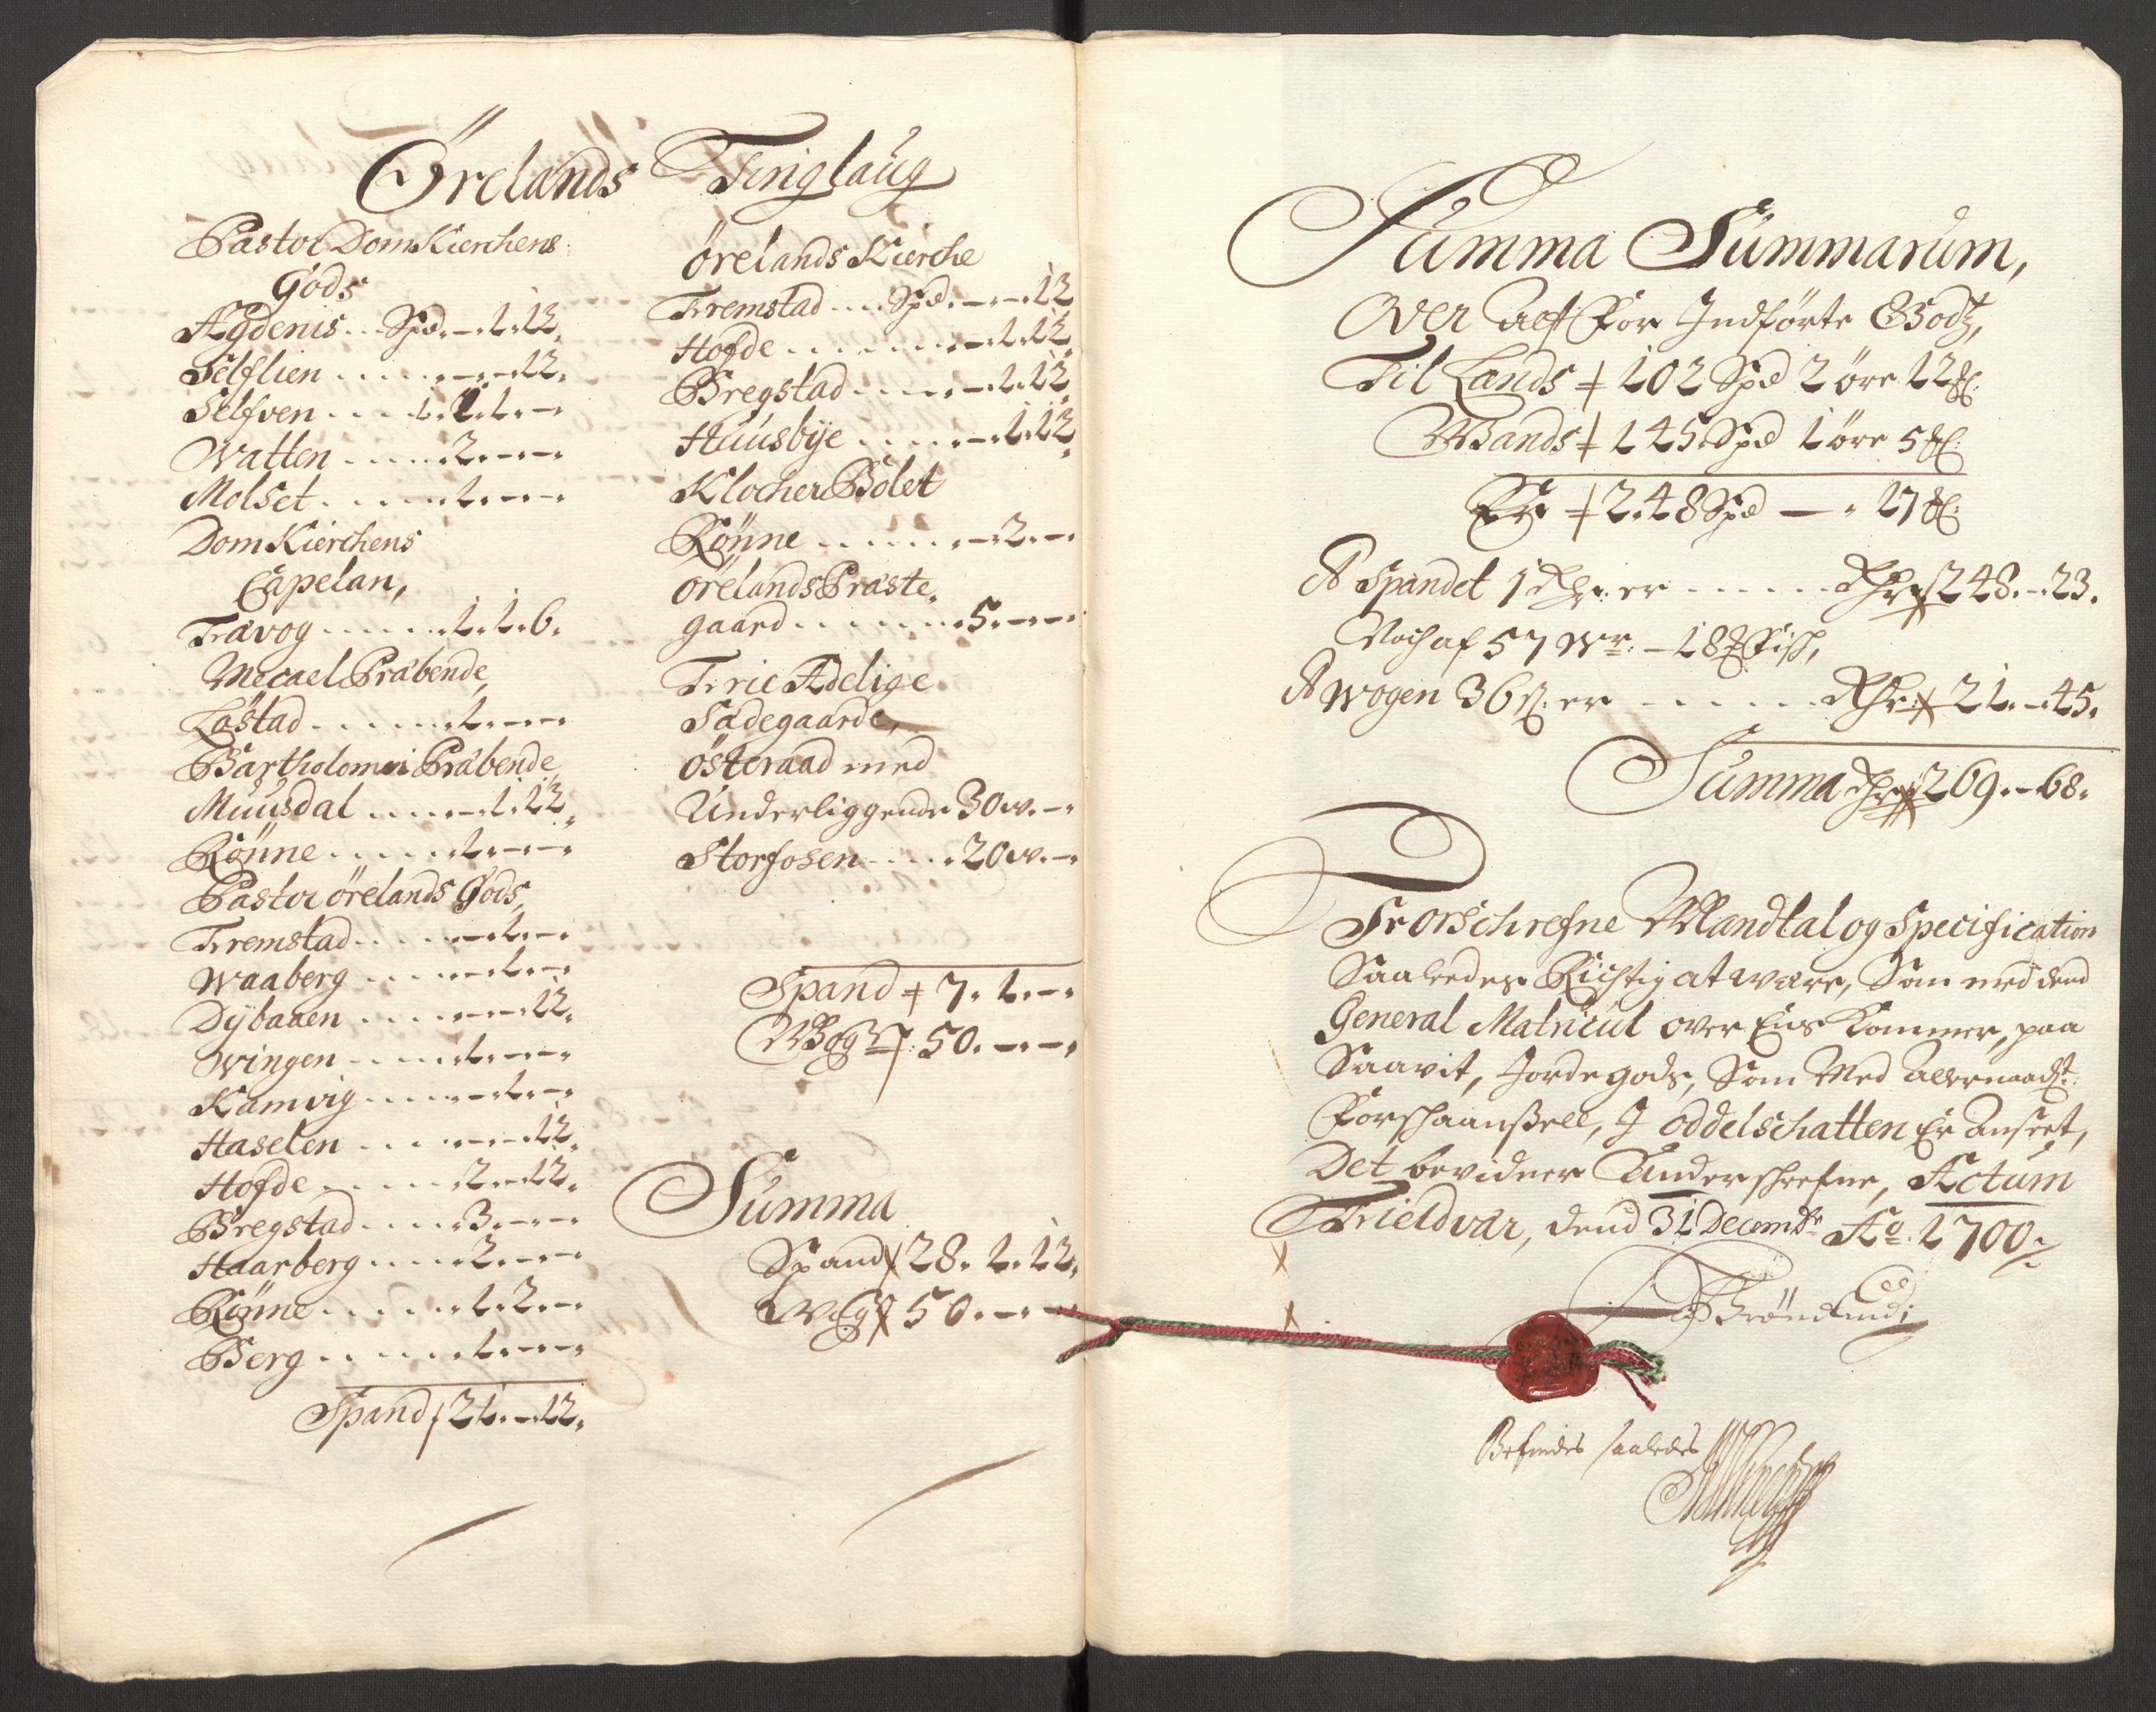 Örelands Tinglaug
Pastor DomKierchens
Gods
Agdenis .. Spd. – . 1. 12.
Selflien . . . . . – . – . 12.
Selfven . . . 1. 1. –
Watten . . . . 2. – . – . –
Molset . . . . . 1. – . – . –
DomKierchens
Capelan,
Trævog . . . . . . 1. 1. 6.
Mecael Præbende,
Lostad . . . . . . 1. – . – . –
Bartholomei Præbende,
Muusdal . . . . – . 1. 12.
Rönne . . . . . . 1. – . – . –
Pastor örelands Gods,
Fremstad . . . . – . 1. – . –
Waaberg . . . . – . 1. – . –
Dÿbaaen . . . . – . – . 12.
Wingen . . . . 1. – . – . –
Kamvig . . . . – . 1. – . –
Haselen . . . . – . – . 12.
Hofde . . . . . 2. – . 12.
Bregstad . . . . 3. – . – . –
Haarberg . . . . 2. – . – . –
Rönne . . . . . . 1. 2. – . –
Berg . . . . . . 1. – . – . –
Spand 21. – . 12.
örelands Kierche
Fremstad . . . Spd. – . – . 12
Hofde . . . . . . . – . 1. 12.
Bregstad . . . . . – . 1. 12.
Huusbÿe . . . . . – . 1. 12.
Klocher Bolet
Rönne . . . . . . – . 2. – . –
örelands Præste,
gaard . . . . . . . 5. – . – . –
Frie Adelige
Sædegaarde,
österaad med
Underliggende 30 w. – .
Storfosen . . . . 20 w. – .
Spand + 7. 1. – .
Wog 50. – . – .
Summa
Spand 28. 1. 12.
Wog 50. – . –
Summa Summarum,
Over alt For Indförte Godtz,
Til Lands + 102 Spd 2 öre 12 &#8468;:
Wands + 145 Spd 1 öre 5 &#8468;:
Er + 248 Spd – . 17 &#8468;:
A Spandet 1 Rdr: er . . . . . . Rdr 248. – . 23.
Noch af 57 Wr: – 18 &#8468; Fisch,
A wogen 36 ß: er . . . . . . Rdr 21. – . 45.
Summa Rdr 269. – 68.
Forschrefne Mandtal og Specification
Saaledes Richtig at være, Som med dend
General Matricul over Eens Kommer, paa
Saavit, Jordegods, Som Med Allernaadst:
Forschaanßell, I Oddelschatten Er Anseet,
Det bevidner Underschrefne, Actum
Trieldvær, dend 31 Decembr Ao. 1700./.
Befindes saaledes